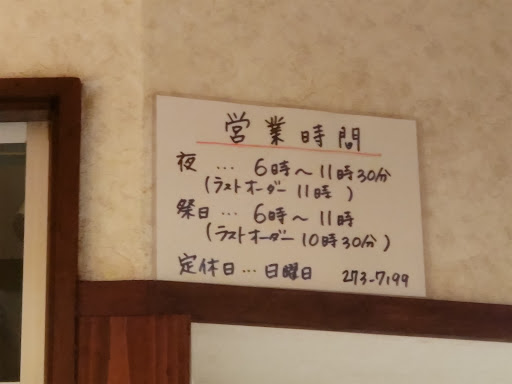 営業時間
夜 … 6時～11時30分
(ラストオーダー 11時 )
祭日 … 6時～11時
(ラストオーダー 10時30分 )
定休日 … 日曜日 273-7199